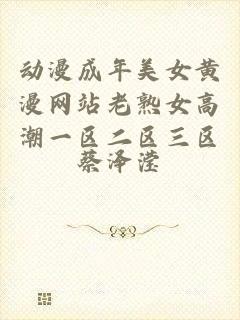 动漫成年美女黄
漫网站老熟女高
潮一区二区三区
蔡泽滢